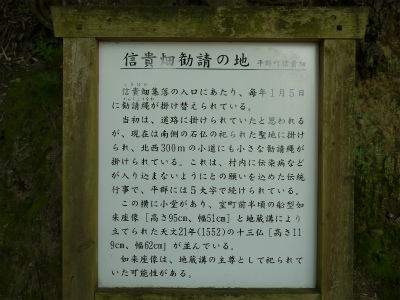 信貴畑勧請の地 平群町信貴畑
しぎはた
信貴畑集落の入口にあたり、毎年1月5日
かんじょうなわ
に勧請縄が掛け替えられている。
当初は、道路に掛けられていたと思われる
が、現在は南側の石仏の祀られた聖地に掛け
られ、北西300mの小道にも小さな勧請縄が
掛けられている。これは、村内に伝染病など
が入り込まないようにとの願いを込めた伝統
行事で、平群には5大字で続けられている。
この横に小堂があり、室町前半頃の船型如
来座像［高さ95cm、幅51cm］と地蔵講により
立てられた天文21年(1552)の十三仏［高さ11
9cm、幅62cm］が並んでいる。
如来座像は、地蔵講の主尊として祀られて
いた可能性がある。